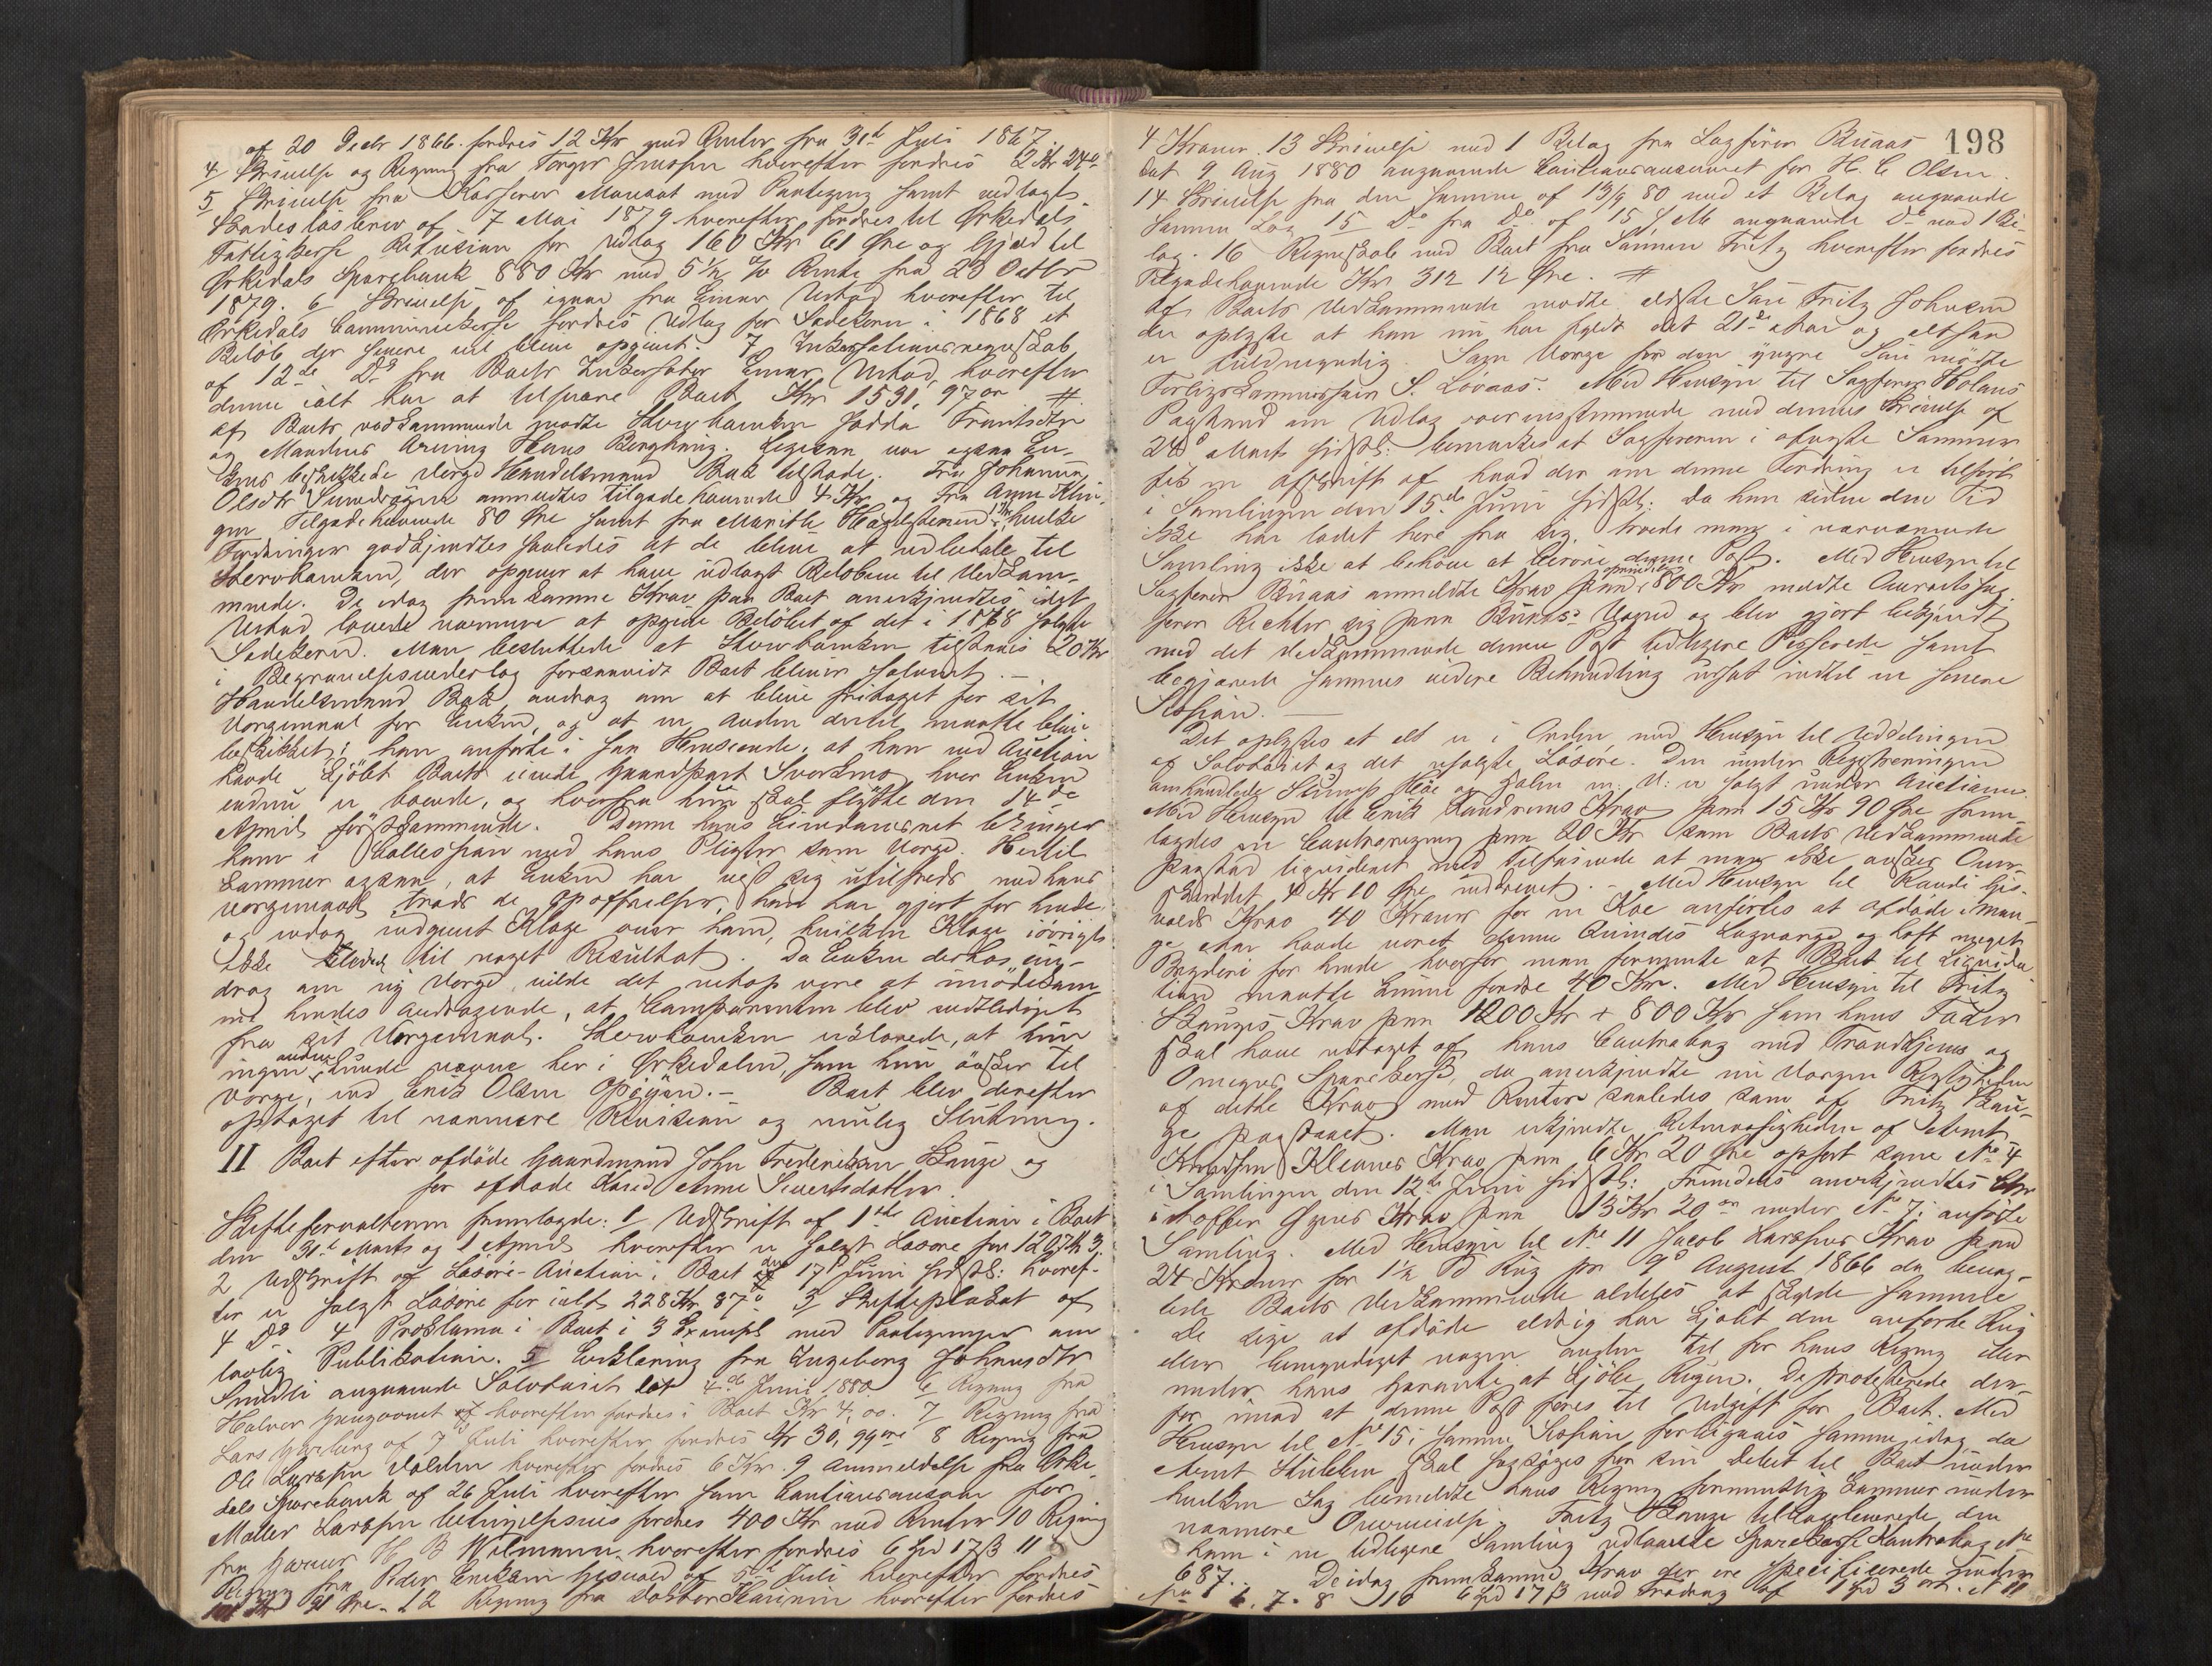 af 20 Decbr 1866 fordres 12 Kr med Renter fra 31te Juli 1867
4 Skrivelse og Regning fra Torger Jonssen hvorefter fordres 2 Kr 24
5 Skrivelse fra Kasserer med Paategning samt vedlagt
Skadesløsbrev af 7 Mai 1879 hvorefter fordres til Ørkedals
Fattigkasse Refusion for Udlæg 160 Kr 61 Øre og Gjæld til
Ørkedals Sparebank 880 Kr med 5½ % Rente fra 23 Octbr
1879. 6 Skrivelse af igaar fra Einar Ustad hvorefter til
Ørkedals Communekasse fordres Udlæg for Sædekorn i 1868 et
Beløb der senere vil blive opgivet. 7 Inkassationsregnskab
af 12te Ds fra Boets Inkassator Einar Ustad, hvorefter
denne ialt har at tilsvare Boet Kr 1531, 97 #
Af Boets vedkommende mødte Stervboenken
og Mandens Arving Hans. Ligesom var ogsaa En-
kens beskikkede Værge Handelsmand Bak tilstede. Fra Johanna
Olsdtr anmeldtes tilgodehavende 4 Kr og fra Anne
Tilgodehavende 80 Øre samt fra Marithe hvilke
Fordringer godkjendtes saaledes at de blive at udbetale til
Stervboenken, der opgiver at have udlagt Beløbene til Vedkom-
mende. De idag fremkomne Krav paa Boet anerkjendtes idet
Ustad lovede nærmere at opgive Beløbet af det i 1868 solgte
Sædekorn. Man besluttede at Stervboenken tilstaaes 20 Kr
i Begravelsesunderlag forsaavidt Boet bliver solvent. —
Handelsmand Bak androg om at blive fritaget for sit
Værgemaal for Enken, og at en Anden dertil maatte blive
beskikket; han anførte i saa Henseende, at han ved Auction
havde kjøbt Boets Gaardpart Svorkmo, hvor Enken
endnu er boende, og hvorfra hun skal flytte den 14de
April førstkommende. Denne hans Eiendomsret bringer
ham i Collission med hans Pligter som Værge. Hertil
kommer ogsaa, at Enken har vist sig utilfreds med hans
Værgemaal trods de Opoffrelser, han har gjort for hende
og idag indgivet Klage over ham, hvilken Klage iøvrigt
ikke ledede til noget Resultat. Da Enken derhos an-
drog om ny Værge, vilde det være at imødekom-
me hendes Andragende, at Comparenten blev entlediget
fra sit Værgemaal. Stervboenken erklærede, at hun
ingen anden kunde nævne her i Ørkedalen, som hun ønsker til
Værge, end Erik Olsen. — Boet blev derefter
optaget til nærmere Revision og mulig Slutning.
II Boet efter afdøde Gaardmand John Frederiksen Skauge og
før afdøde Kone Anne Sivertsdatter.
Skifteforvalteren fremlagde: 1/ Udskrift af 1ste Auction i Boet
den 31te Marts og 1 April hvorefter er solgt Løsøre for 1207 Kr 3.
2 Udskrift af Løsøre-Auction i Boet den 17 Juni sidstl: hvoref-
ter er solgt Løsøre for ialt 228 Kr 87 3/ Skifteplakat af
4 Ds 4 Proklama i Boet i 3 Exempl med Paategninger om
lovlig Publikation. 5/ Erklæring fra Ingeborg Johnsdtr
angaaende Sølvtøiet dat 4de Juni 1880 6/ Regning fra
Halvor hvorefter fordres i Boet Kr 4,00. 7/ Regning fra
Lars af 7 Juli hvorefter fordres Kr 30, 99 8 Regning fra
Ole Larssen hvorefter fordres 6 Kr. 9 Anmeldelse fra Ørke-
dals Sparebank af 26 Juli hvorefter som Cautionsansvar for
Møller Larssen fordres 400 Kr med Renter 10 Regning
fra Garver H B Wolmann hvorefter fordres 6 Spd 17 ß 11
Regning fra Peder Eriksen af 5 Juli hvorefter fordres
91 Øre. 12 Regning fra Doktor hvorefter fordres
198
4 Kroner. 13 Skrivelse med 1 Bilag fra Sagfører Buaas
dat 9 Aug 1880 angaaende Cautionsansvaret for H. C Olsen.
14 Skrivelse fra den samme af 13/9 80 med et Bilag angaaende
samme Sag 15 Do fra Do af 15 angaaende Do med 1 Bi-
lag. 16 Regnskab med Boet fra Sønnen Fritz hvorefter fordres
Tilgodehavende Kr 312 12 Øre. #
Af Boets Vedkommende mødte ældste Søn Fritz Johnsen
der oplyste at han nu har fyldt det 21de Aar og altsaa
er fuldmyndig. Som Værge for den yngre Søn mødte
Forligskommissair S. Løvaas. Med Hensyn til Sagfører Holans
Paastand om Udlæg overensstemmende med dennes Skrivelse af
24de Marts sidstl: bemærkes at Sagføreren i afvigte Sommer
fik en Afskrift af hvad der om denne Fordring er tilført
i Samlingen den 15de Juni sidstl: da han siden den Tid
ikke har ladet høre fra sig, troede man i nærværende
Samling ikke at behøve at berøre denne Post. Med Hensyn til
Sagfører Buaas anmeldte Krav paa 800 Kr meldte Overretssag-
fører Richter sig paa Buaas's Vegne og blev gjort bekjendt
med det vedkommende denne Post tidligere Passerede samt
begjærede sammes videre Behandling udsat indtil en senere
Session. —
Det oplystes at alt er i Orden med Hensyn til Uddelingen
af Sølvtøiet og det usolgte Løsøre. Den under Registreringen
omhandlede Høe og Halm m. v: er solgt under Auctionen.
Med Hensyn til Erik Krav paa 15 Kr 90 Øre frem-
lagdes en Contraregning paa 20 Kr som Boets Vedkommende
paastod ligvideret med Tilføiende at man ikke ønsker Over-
skuddet 4 Kr 10 Øre inddrevet. — Med Hensyn til Randi Gis-
valds Krav 40 Kroner for en Koe anførtes at afdøde i man-
ge Aar havde været denne Qvindes Lagværge og havt meget
Bryderi for hende hvorfor man formente at Boet til Liqvida-
tion maatte kunne fordre 40 Kr. Med Hensyn til Fritz
Skauges Krav paa 1200 Kr + 800 Kr som hans Fader
skal have udtaget af hans Contrabog med Trondhjems og
Omegns Sparekasse, da anerkjendte nu Værgen Rigtigheden
af dette Krav med Renter saaledes som af Fritz Skau-
ge paastaaet. Man erkjendte Retmæssigheden af Arnt
Knudsen Kleanes Krav paa 6 Kr 20 Øre opført som No 4
i Samlingen den 12te Juni sidstl: Fremdeles anerkjendtes
Krav paa 13 Kr 20 under No 7 i anførte
Samling. Med Hensyn til No 11 Jacob Larssens Krav paa
24 Kroner for 1½ Rug fra 9de August 1866 da benæg-
tede Boets Vedkommende aldeles at skylde samme
De sige at afdøde aldrig har kjøbt den anførte Rug
eller bemyndiget nogen anden til for hans Regning eller
under hans Garanti at kjøbe Rugen. De protesterede der-
for imod at denne Post føres til Udgift for Boet. Med
Hensyn til No 15 i samme Session forbigaaes samme idag, da
Arnt skal sagsøges for sin Debet til Boet under
hvilken Sag bemeldte hans Regning formentlig kommer under
nærmere Overveielse. Fritz Skauge tilbageleverede den
ham i en tidligere Samling udlaante Sparekasse Kontrabog No
687. De idag fremkomne Krav der ere specificerede under
No 6. 7. 8 10 6 Spd 17 ß med Fradrag af 1 Spd 3 ort. et 11